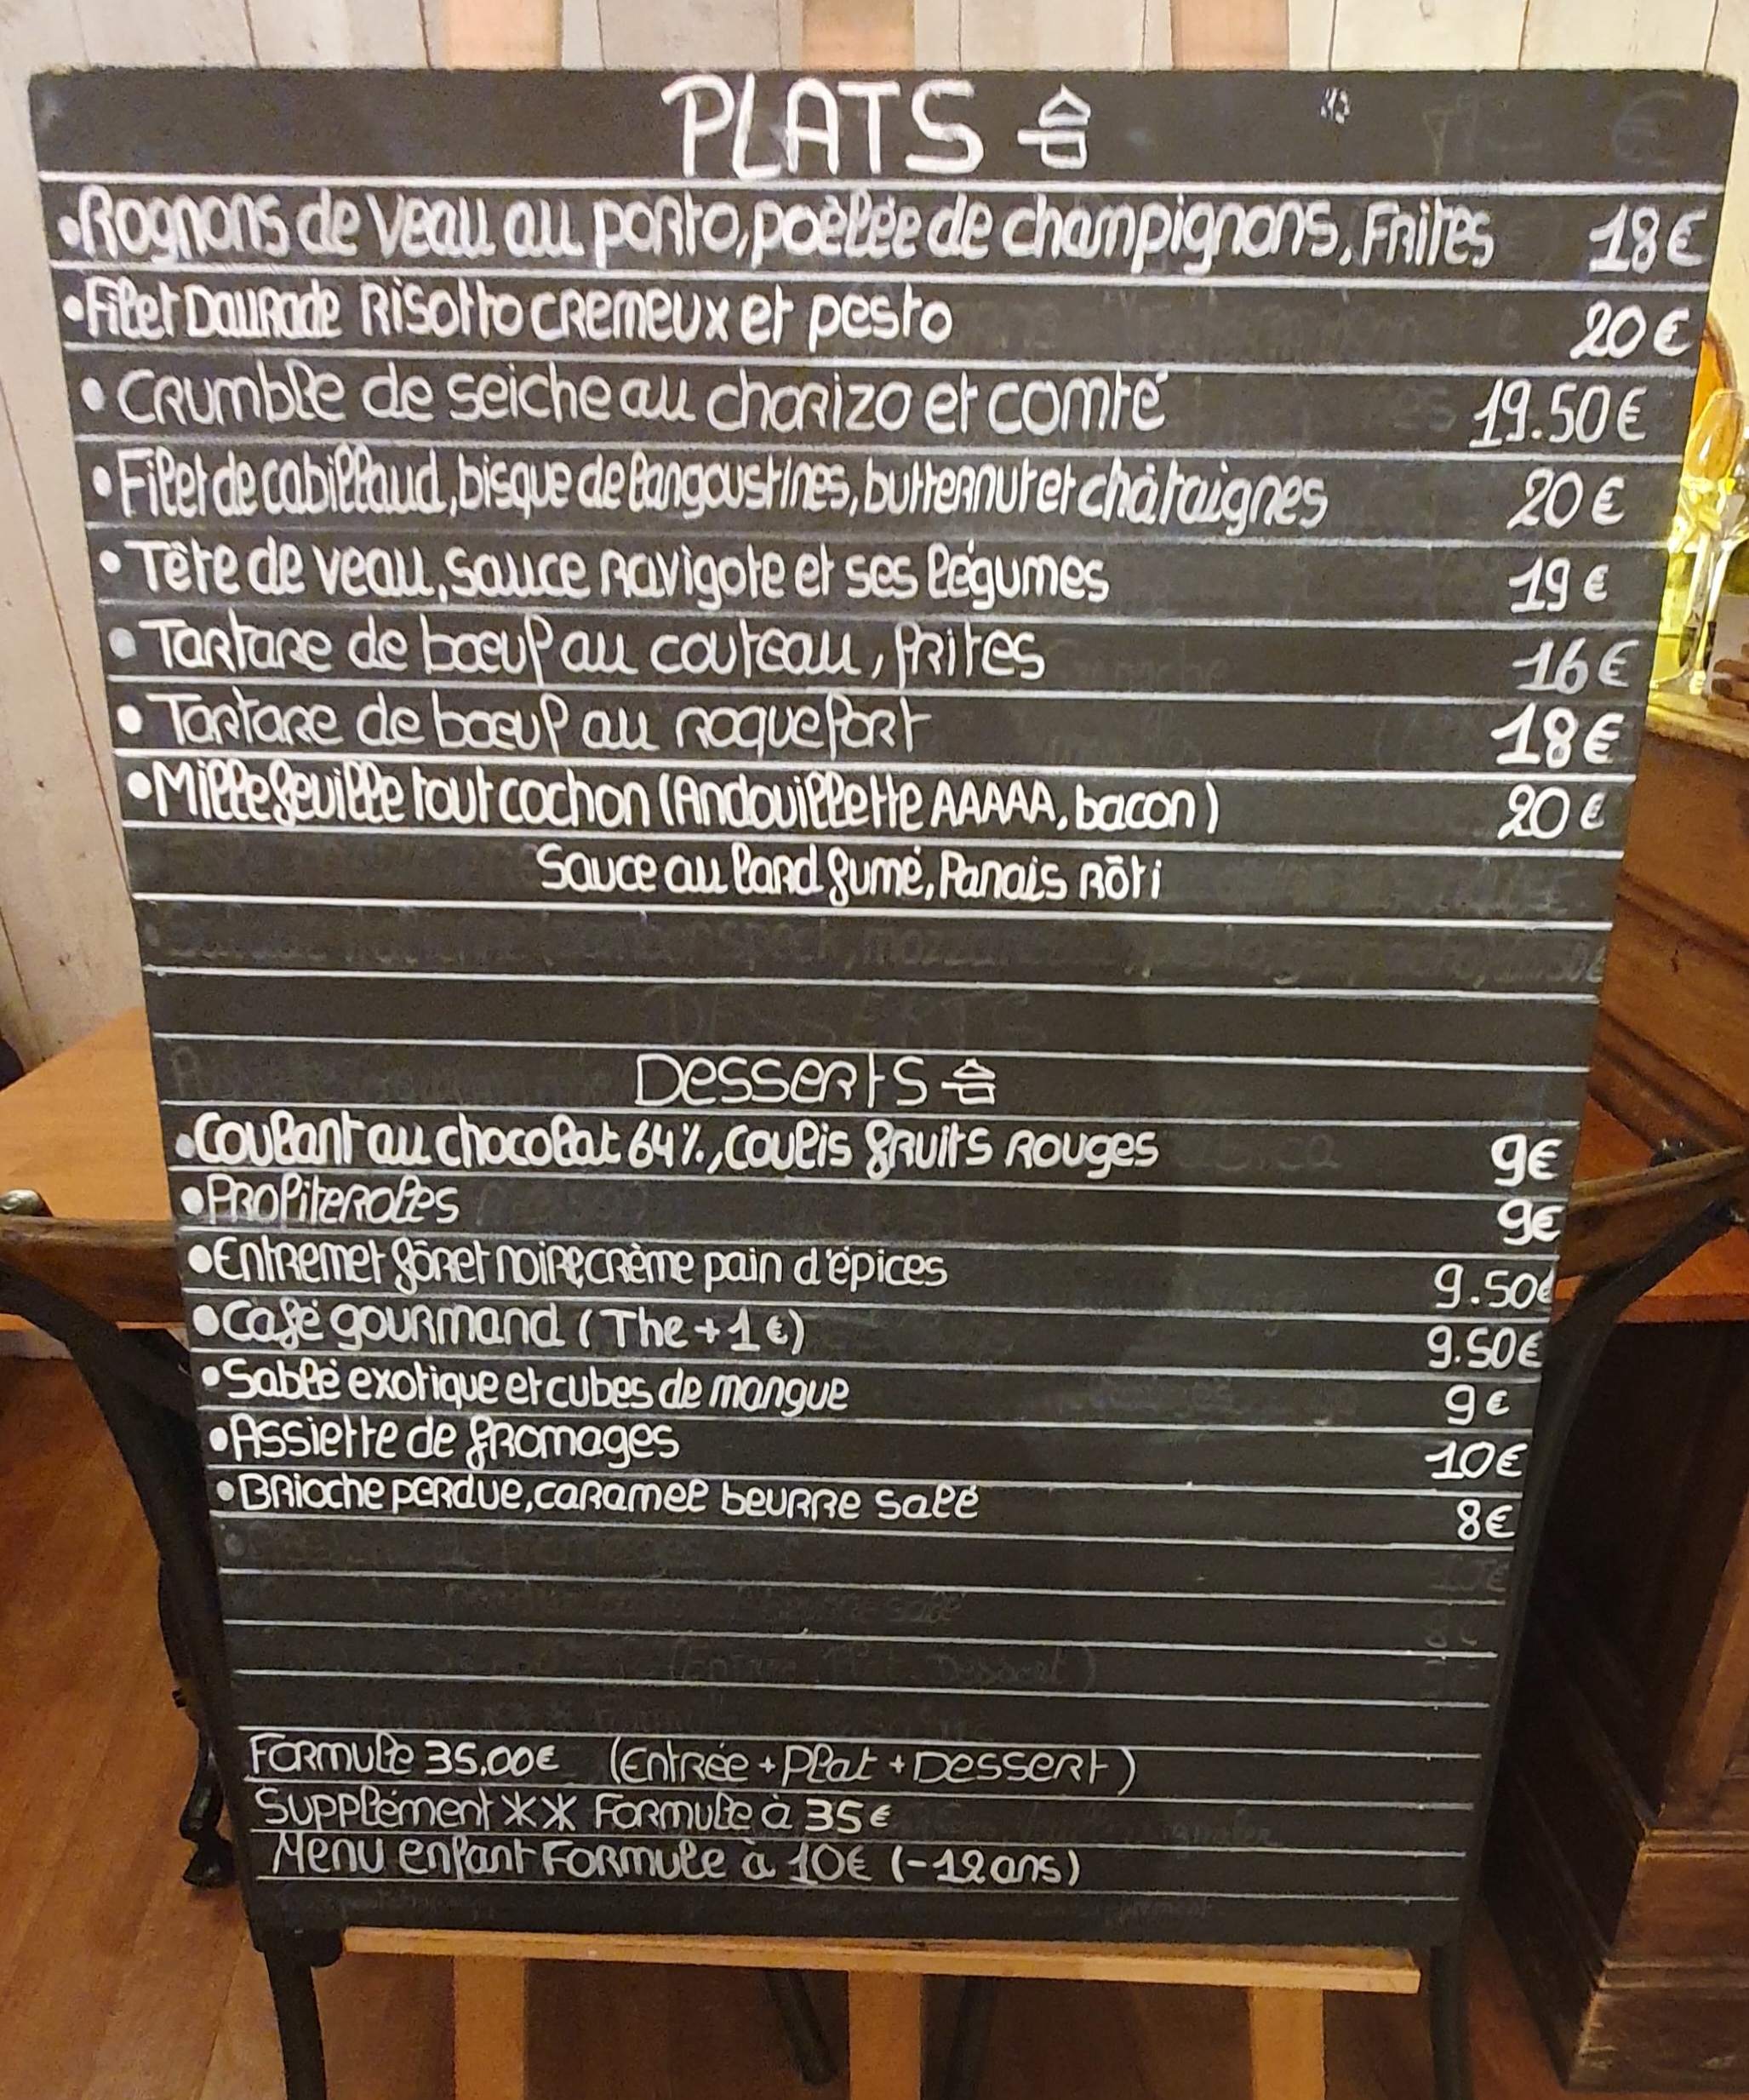 PLATS
•Rognons de veau au porto, poèlée de champignons, Frites 18€
•Filet Daurade Risotto cremeux et pesto 20€
•Crumble de seiche au chorizo et comté 19.50€
•Filet de cabillaud, bisque de langoustines, butternut et châtaignes 20€
•Tête de veau, sauce ravigote et ses légumes 19€
•Tartare de bœuf au couteau, frites 16€
•Tartare de bœuf au roquefort 18€
•Millefeuille tout cochon (Andouillette AAAAA, bacon) 20€
Sauce au lard fumé, Panais Rôti
Desserts
•Coulant au chocolat 64%, coulis fruits Rouges 9€
•Profiteroles 9€
•Entremet fôret noire, crème pain d'épices 9.50€
•Café gourmand (The +1€) 9.50€
•Sablé exotique et cubes de mangue 9€
•Assiette de fromages 10€
•Brioche perdue, caramel beurre salé 8€
Formule 35.00€ (Entrée + Plat + Dessert)
Supplément ** Formule à 35€
Menu enfant Formule à 10€ (-12ans)